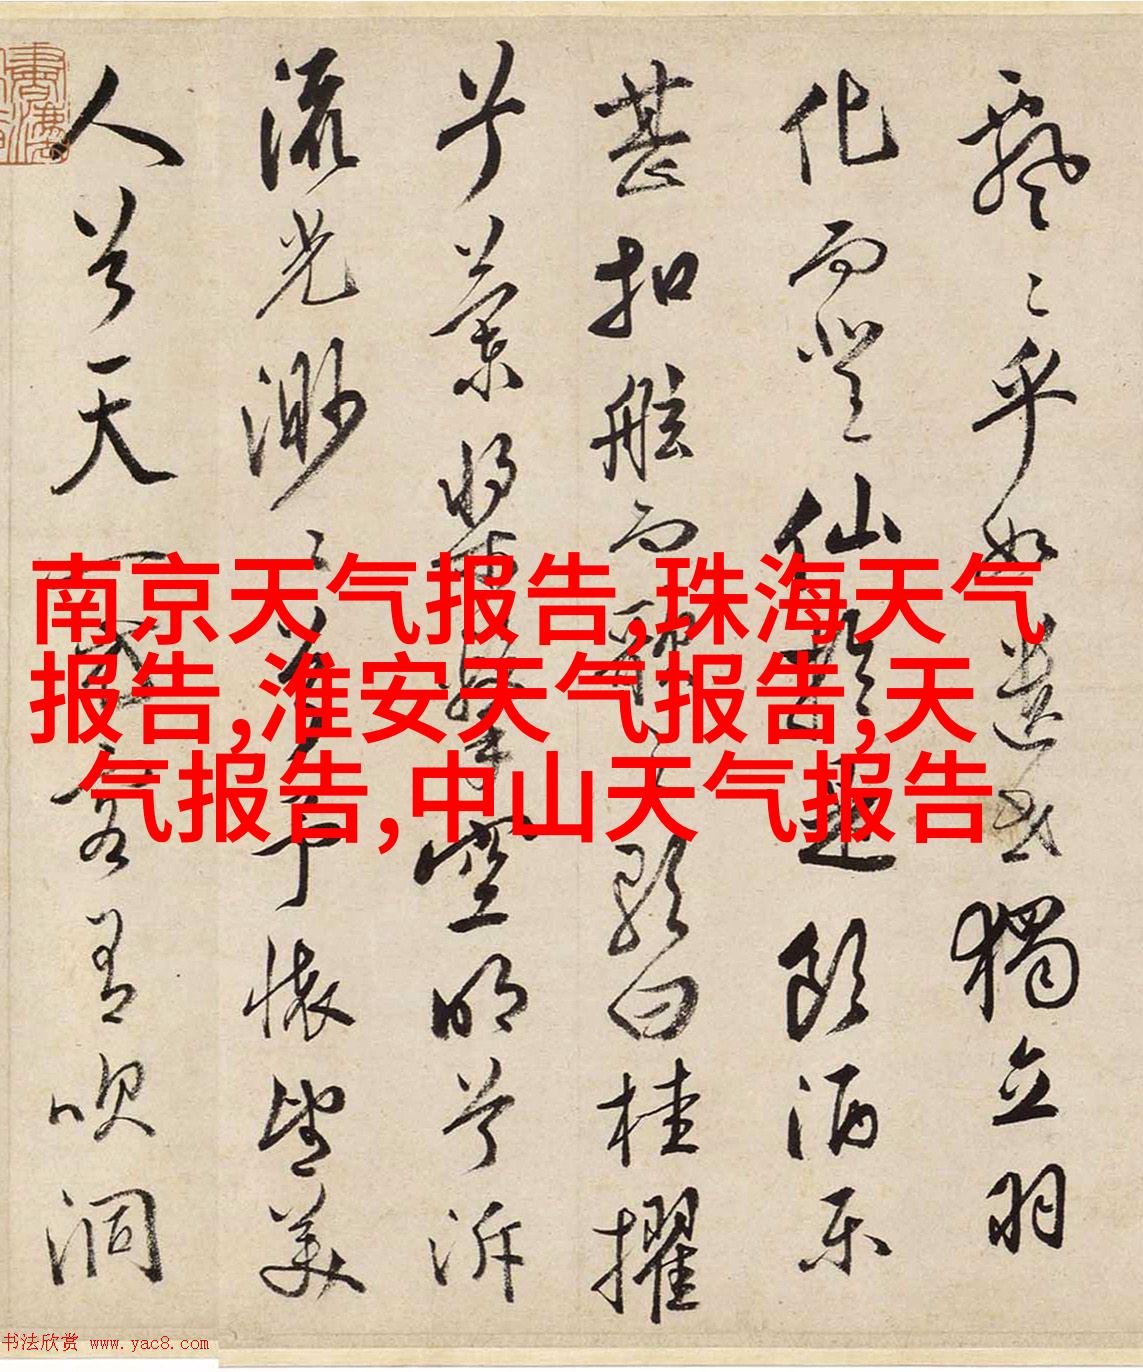 飄〻乎如遺世獨立羽
化而登仙於是飲酒樂
甚扣舷而歌之歌曰桂擢
兮蘭槳擊空明兮泝
流光渺〻兮予懷望美
人兮天一方客有吹洞
南京天气报告,珠海天气
报告,淮安天气报告,天
气报告,中山天气报告
书法欣赏 www.yac8.com